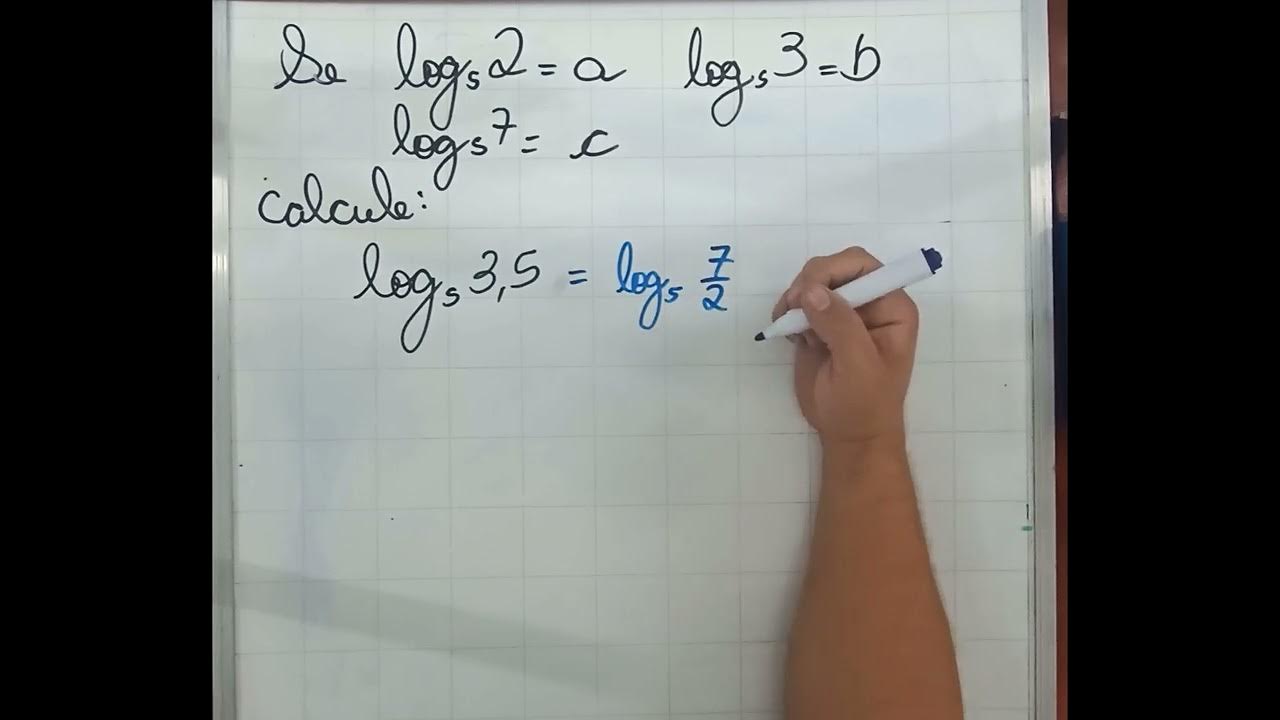 Se log₅2 = a log₅3 = b
log₅7 = c
Calcule:
log₅3,5 = log₅ 7/2